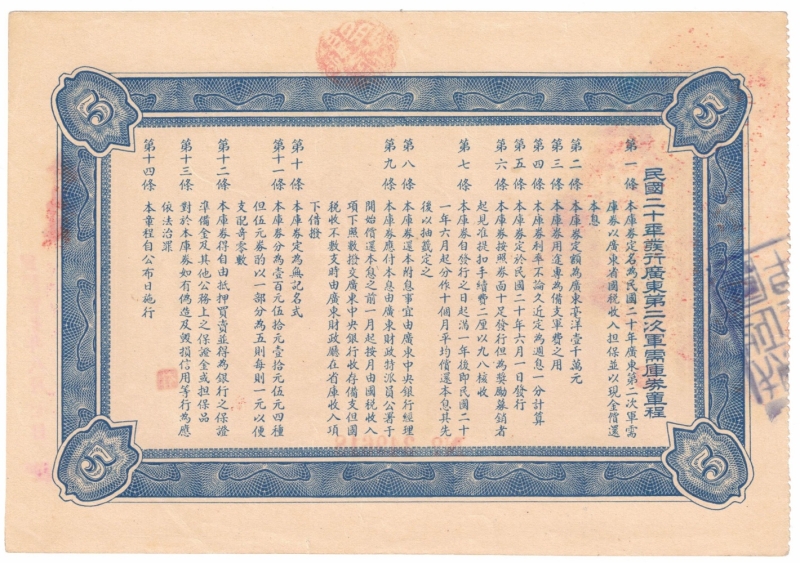 民國二十年發行廣東第二次軍需庫券章程
第一條 本庫券定名為民國二十年廣東第二次軍需
庫券以廣東省國稅收入担保並以現金償還
本息
第二條 本庫券定額為廣東毫洋壹千萬元
第三條 本庫券用途專為備支軍費之用
第四條 本庫券利率不論久近定為週息一分計算
第五條 本庫券定於民國二十年六月一日發行
第六條 本庫券按照券面十足發行但為奬勵募銷者
起見准提扣手續費二厘以九八核收
第七條 本庫券自發行之日起滿一年後即民國二十
一年六月起分作十個月平均償還本息其先
後以抽籤定之
第八條 本庫券還本附息事宜由廣東中央銀行經理
第九條 本庫券應付本息由廣東財政特派員公署于
開始償還本息之前一月起按月由國稅收入
項下照數撥交廣東中央銀行收存備支但國
稅收不數支時由廣東財政廳在省庫收入項
下借撥
第十條 本庫券定為無記名式
第十一條 本庫券分為壹百元伍拾元壹拾元伍元四種
但伍元券酌以一部分為五則每則一元以便
支配奇零數
第十二條 本庫券得自由抵押買賣並得為銀行之保證
準備金及其他公務上之保證金或担保品
第十三條 對於本庫券如有偽造及毀損信用等行為應
依法治罪
第十四條 本章程自公布日施行
5
5
5
5